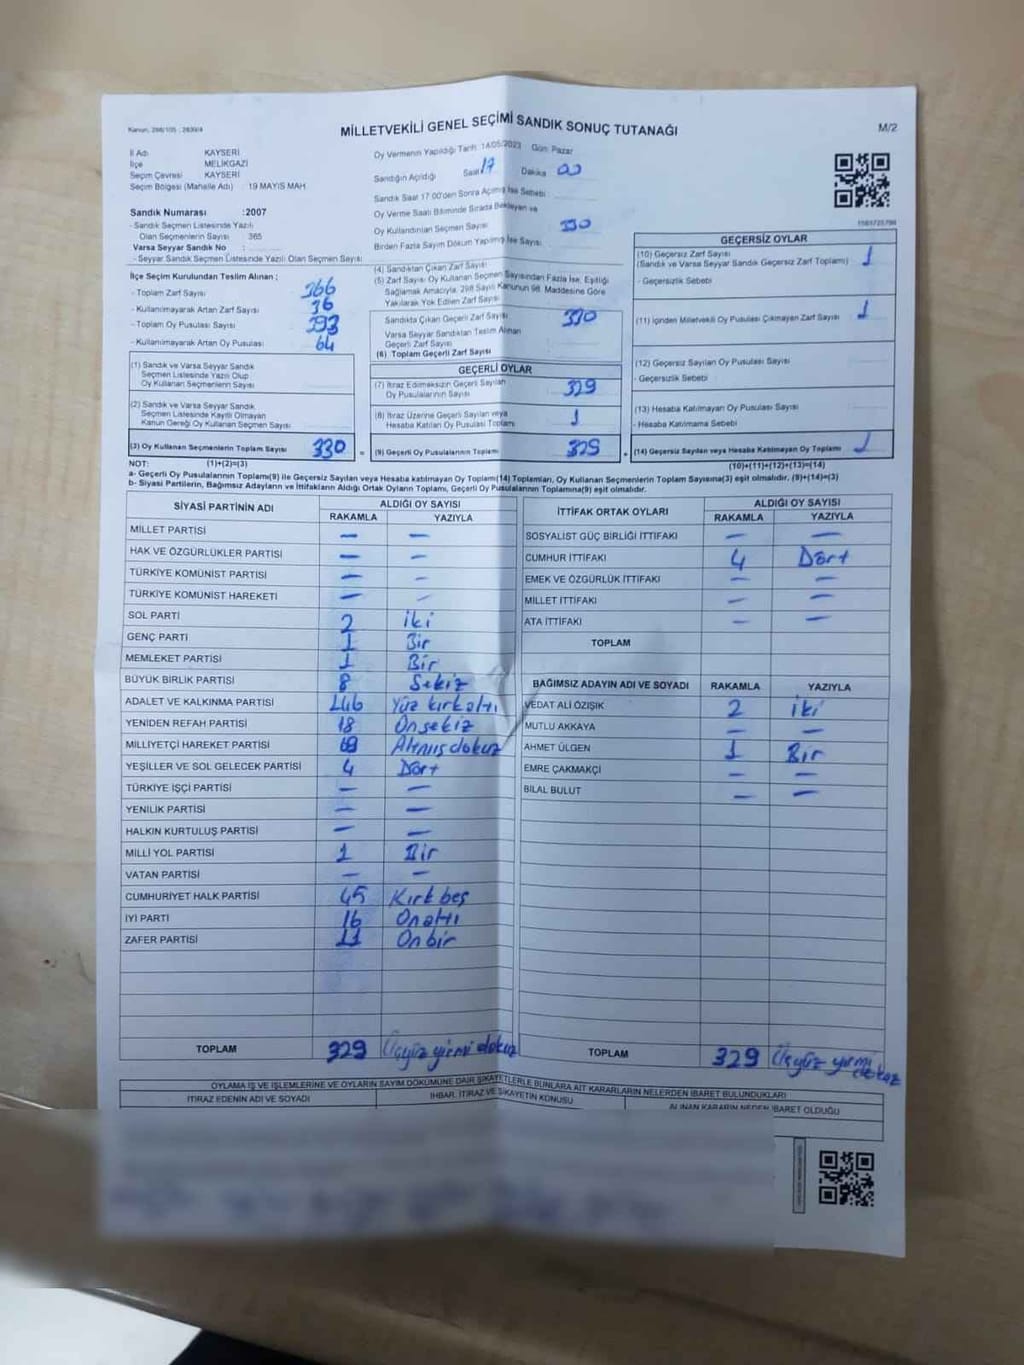 Kanun: 298/105 ; 2839/4
MİLLETVEKİLİ GENEL SEÇİMİ SANDIK SONUÇ TUTANAĞI
M/2
İl Adı KAYSERİ
İlçe MELİKGAZİ
Seçim Çevresi KAYSERİ
Seçim Bölgesi (Mahalle Adı) : 19 MAYIS MAH.
Sandık Numarası :2007
- Sandık Seçmen Listesinde Yazılı
Olan Seçmenlerin Sayısı 365
Varsa Seyyar Sandık No :
- Seyyar Sandık Seçmen Listesinde Yazılı Olan Seçmen Sayısı :
Oy Vermenin Yapıldığı Tarih: 14/05/2023 Gün: Pazar
Sandığın Açıldığı Saat 17 Dakika 00
Sandık Saat 17.00'den Sonra Açılmış İse Sebebi
Oy Verme Saati Bitiminde Sırada Bekleyen ve
Oy Kullandırılan Seçmen Sayısı 330
Birden Fazla Sayım Döküm Yapılmış İse Sayısı
İlçe Seçim Kurulundan Teslim Alınan :
- Toplam Zarf Sayısı 366
- Kullanılmayarak Artan Zarf Sayısı 36
- Toplam Oy Pusulası Sayısı 393
- Kullanılmayarak Artan Oy Pusulası 64
(1) Sandık ve Varsa Seyyar Sandık
Seçmen Listesinde Yazılı Olup
Oy Kullanan Seçmenlerin Sayısı
(2) Sandık ve Varsa Seyyar Sandık
Seçmen Listesinde Kayıtlı Olmayan
Kanun Gereği Oy Kullanan Seçmen Sayısı
(3) Oy Kullanan Seçmenlerin Toplam Sayısı 330
(4) Sandıktan Çıkan Zarf Sayısı
(5) Zarf Sayısı Oy Kullanan Seçmen Sayısından Fazla İse, Eşitliği
Sağlamak Amacıyla, 298 Sayılı Kanunun 98. Maddesine Göre
Yakılarak Yok Edilen Zarf Sayısı
Sandıkta Çıkan Geçerli Zarf Sayısı 330
Varsa Seyyar Sandıktan Teslim Alınan
Geçerli Zarf Sayısı
(6) Toplam Geçerli Zarf Sayısı
GEÇERLİ OYLAR
(7) İtiraz Edilmeksizin Geçerli Sayılan
Oy Pusulalarının Sayısı 329
(8) İtiraz Üzerine Geçerli Sayılan veya
Hesaba Katılan Oy Pusulası Toplamı 1
= (9) Geçerli Oy Pusulalarının Toplamı 329
GEÇERSİZ OYLAR
(10) Geçersiz Zarf Sayısı
(Sandık ve Varsa Seyyar Sandık Geçersiz Zarf Toplamı) 1
- Geçersizlik Sebebi
(11) İçinden Milletvekili Oy Pusulası Çıkmayan Zarf Sayısı 1
(12) Geçersiz Sayılan Oy Pusulası Sayısı
- Geçersizlik Sebebi
(13) Hesaba Katılmayan Oy Pusulası Sayısı
- Hesaba Katılmama Sebebi
+ (14) Geçersiz Sayılan veya Hesaba Katılmayan Oy Toplamı 1
NOT: (1)+(2)=(3) (10)+(11)+(12)+(13)=(14)
a- Geçerli Oy Pusulalarının Toplamı(9) ile Geçersiz Sayılan veya Hesaba katılmayan Oy Toplamı(14) Toplamları, Oy Kullanan Seçmenlerin Toplam Sayısına(3) eşit olmalıdır. (9)+(14)=(3)
b- Siyasi Partilerin, Bağımsız Adayların ve İttifakların Aldığı Ortak Oyların Toplamı, Geçerli Oy Pusulalarının Toplamına(9) eşit olmalıdır.
SİYASİ PARTİNİN ADI ALDIĞI OY SAYISI
RAKAMLA YAZIYLA
MİLLET PARTİSİ — —
HAK VE ÖZGÜRLÜKLER PARTİSİ — —
TÜRKİYE KOMÜNİST PARTİSİ — —
TÜRKİYE KOMÜNİST HAREKETİ — —
SOL PARTİ 2 iki
GENÇ PARTİ 1 Bir
MEMLEKET PARTİSİ 1 Bir
BÜYÜK BİRLİK PARTİSİ 8 Sekiz
ADALET VE KALKINMA PARTİSİ 146 Yüz kırkaltı
YENİDEN REFAH PARTİSİ 18 Onsekiz
MİLLİYETÇİ HAREKET PARTİSİ 69 Altmışdokuz
YEŞİLLER VE SOL GELECEK PARTİSİ 4 Dört
TÜRKİYE İŞÇİ PARTİSİ — —
YENİLİK PARTİSİ — —
HALKIN KURTULUŞ PARTİSİ — —
MİLLİ YOL PARTİSİ 1 Bir
VATAN PARTİSİ — —
CUMHURİYET HALK PARTİSİ 45 Kırk beş
İYİ PARTİ 16 Onaltı
ZAFER PARTİSİ 11 Onbir
TOPLAM 329 Üçyüz yirmi dokuz
İTTİFAK ORTAK OYLARI ALDIĞI OY SAYISI
RAKAMLA YAZIYLA
SOSYALİST GÜÇ BİRLİĞİ İTTİFAKI — —
CUMHUR İTTİFAKI 4 Dört
EMEK VE ÖZGÜRLÜK İTTİFAKI — —
MİLLET İTTİFAKI — —
ATA İTTİFAKI — —
TOPLAM
BAĞIMSIZ ADAYIN ADI VE SOYADI RAKAMLA YAZIYLA
VEDAT ALİ ÖZIŞIK 2 iki
MUTLU AKKAYA — —
AHMET ÜLGEN 1 Bir
EMRE ÇAKMAKÇİ — —
BİLAL BULUT — —
TOPLAM 329 Üçyüz yirmi dokuz
OYLAMA İŞ VE İŞLEMLERİNE VE OYLARIN SAYIM DÖKÜMÜNE DAİR ŞİKAYETLERLE BUNLARA AİT KARARLARIN NELERDEN İBARET BULUNDUKLARI
İTİRAZ EDENİN ADI VE SOYADI İHBAR, İTİRAZ VE ŞİKAYETİN KONUSU ALINAN KARARIN NEDEN İBARET OLDUĞU